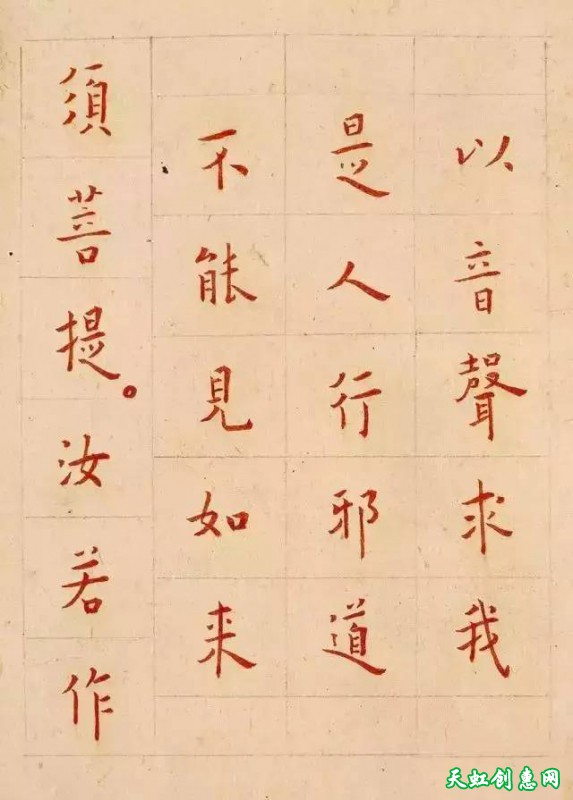 以音聲求我
是人行邪道
不能見如来
須菩提。汝若作
天虹创惠网